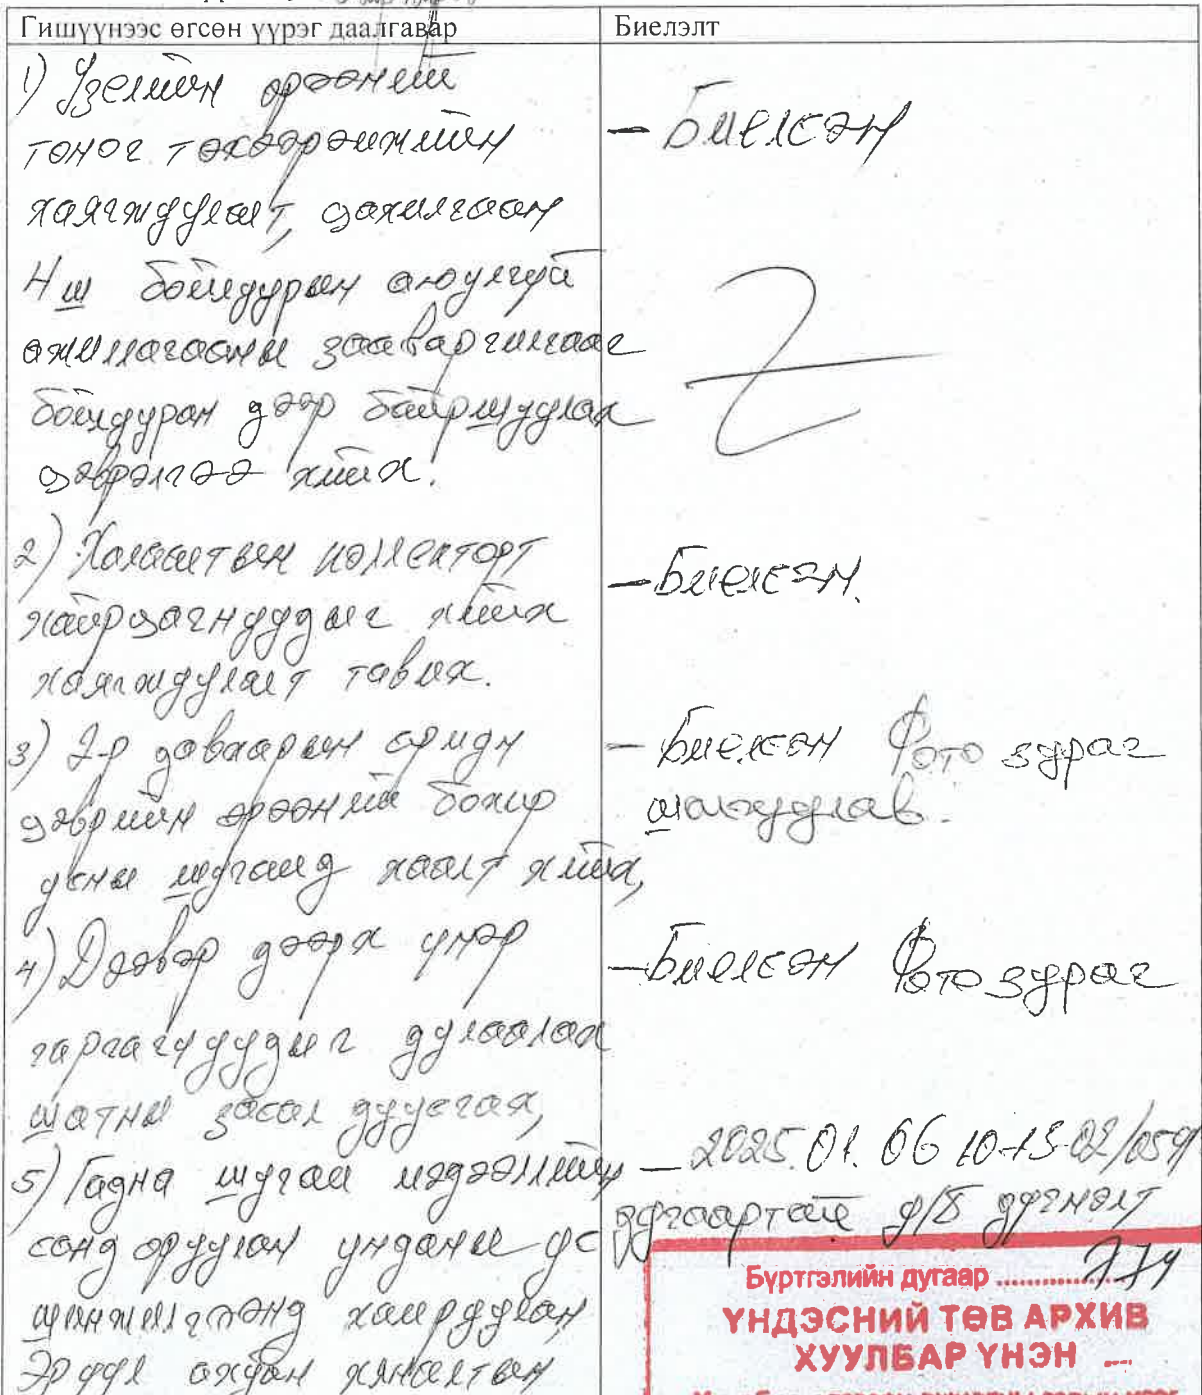 Гишүүнээс өгсөн үүрэг даалгавар
Биелэлт
1) Узелийн өрөөний
тоног төхөөрөмжийн
хаягжуулалт, цахилгаан
4ш бойлдурын аюулгүй
ажиллагааны зааварчилгааг
бойлдуран дээр байршуулах
цэвэрэлгээ хийх.
- Биелсэн
2) Халаалтын коллекторт
хайрцагнуудыг хийх
хаягждуулалт тавих.
- Биелсэн.
3) 2-р даваарын
цэврийн өрөөний бохир
усны шугамд хаалт хийх,
- Биелсэн Фото зураг
шалгуулав.
4) Дээвэр дээрх үнэр
гаргагчуудыг дулаалах
шатны засал дуусгах,
- Биелсэн Фото зураг
5) Гадна шугам мэдээллийн
санд оруулан ундны ус
шинжилгээнд хамруулан,
Эрүүл ахуйн хяналтын
- 2025.01.06 10-13-02/059
дугаартай дүгнэлт
Бүртгэлийн дугаар ................ 774
ҮНДЭСНИЙ ТӨВ АРХИВ
ХУУЛБАР ҮНЭН